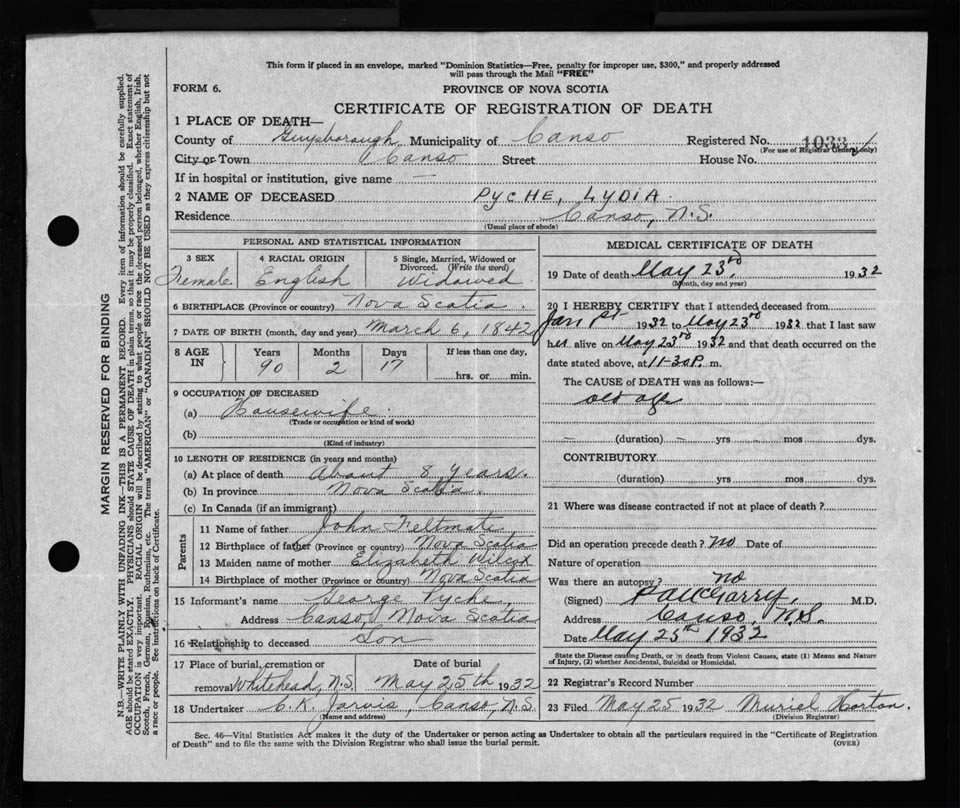 This form if placed in an envelope, marked "Dominion Statistics—Free, penalty for improper use, $300," and properly addressed
will pass through the Mail "FREE"
FORM 6.
PROVINCE OF NOVA SCOTIA
CERTIFICATE OF REGISTRATION OF DEATH
1 PLACE OF DEATH—
County of Guysborough Municipality of Canso Registered No. 1033
(For use of Registrar General only)
City or Town Canso Street House No.
If in hospital or institution, give name —
2 NAME OF DECEASED PYCHE, LYDIA
Residence Canso, N.S.
(Usual place of abode)
PERSONAL AND STATISTICAL INFORMATION
3 SEX Female
4 RACIAL ORIGIN English
5 Single, Married, Widowed or Divorced. (Write the word) Widowed
6 BIRTHPLACE (Province or country) Nova Scotia
7 DATE OF BIRTH (month, day and year) March 6, 1842
8 AGE IN Years 90 Months 2 Days 17 If less than one day, hrs. or min.
9 OCCUPATION OF DECEASED
(a) Housewife
(Trade or occupation or kind of work)
(b)
(Kind of industry)
10 LENGTH OF RESIDENCE (in years and months)
(a) At place of death About 8 Years.
(b) In province Nova Scotia.
(c) In Canada (if an immigrant)
Parents
11 Name of father John Feltmate
12 Birthplace of father (Province or country) Nova Scotia
13 Maiden name of mother Elizabeth Wilcox
14 Birthplace of mother (Province or country) Nova Scotia
15 Informant's name George Pyche
Address Canso, Nova Scotia
16 Relationship to deceased Son
17 Place of burial, cremation or removal Whitehead, N.S. Date of burial May 25th 1932
18 Undertaker C. K. Jarvis, Canso, N.S.
(Name and address)
MEDICAL CERTIFICATE OF DEATH
19 Date of death May 23rd, 1932
(Month, day and year)
20 I HEREBY CERTIFY that I attended deceased from
Jan 1st 1932 to May 23rd 1932 that I last saw
her alive on May 23rd 1932 and that death occurred on the
date stated above, at 11-30 P. m.
The CAUSE OF DEATH was as follows:—
old age
— (duration) — yrs — mos dys.
CONTRIBUTORY
(duration) yrs mos dys.
21 Where was disease contracted if not at place of death?
Did an operation precede death? no Date of
Nature of operation
Was there an autopsy? no
(Signed) M.D.
Address Canso, N.S.
Date May 25th 1932
State the Disease causing Death, or in death from Violent Causes, state (1) Means and
Nature of Injury, (2) whether Accidental, Suicidal or Homicidal.
22 Registrar's Record Number
23 Filed May 25 1932 Muriel Horton.
(Division Registrar)
Sec. 46—Vital Statistics Act makes it the duty of the Undertaker or person acting as Undertaker to obtain all the particulars required in the "Certificate of Registration
of Death" and to file the same with the Division Registrar who shall issue the burial permit.
(OVER)
MARGIN RESERVED FOR BINDING
N.B.—WRITE PLAINLY WITH UNFADING INK—THIS IS A PERMANENT RECORD. Every item of information should be carefully supplied.
AGE should be stated EXACTLY. PHYSICIANS should STATE CAUSE OF DEATH in plain terms, so that it may be properly classified. Exact statement of
OCCUPATION is very important. RACIAL ORIGIN will be described by stating to what people or race the deceased person belonged, whether English, Irish,
Scotch, French, German, Russian, Ruthenian, etc. The terms "AMERICAN" or "CANADIAN" SHOULD NOT BE USED as they express citizenship but not
a race or people. See instructions on back of Certificate.